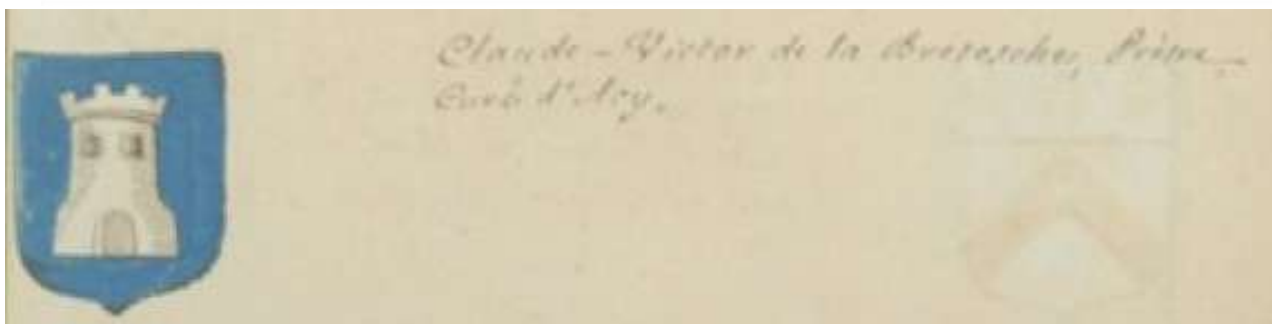 Claude-Victor de la Bretesche, Prêtre,
Curé d'Acy.